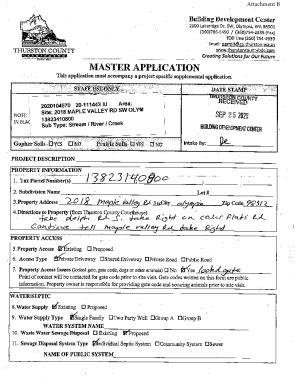 Attachment B
THURSTON COUNTY
Building Development Center
2000 Lakeridge Dr. SW, Olympia, WA 98502
(360)786-5490 / (360)754-2939 Fax
TDD Line (360) 754-2933
Email:
www.thurstoncountybdc.com
Creating Solutions for Our Future
MASTER APPLICATION
This application must accompany a project specific supplemental application.
STAFF USE ONLY
DATE STAMP
NOTE:
IN BLAC
2020104570 20-111443 IU Area:
Site: 2018 MAPLE VALLEY RD SW OLYM
13823140800
Sub Type: Stream / River / Creek
THURSTON COUNTY
RECEIVED
SEP 25 2020
BUILDING DEVELOPMENT CENTER
Gopher Soils YES NO Prairie Soils YES NO
Intake By:
PROJECT DESCRIPTION
PROPERTY INFORMATION
1. Tax Parcel Number(s) 13823140800
2. Subdivision Name Lot #
3. Property Address 2018 Maple Valley Rd SW City Olympia Zip Code 98512
4. Directions to Property (from Thurston County Courthouse)
Take Delphi Rd S. take Right on Cedar Flats Rd
Continue till Maple Valley Rd take Right
PROPERTY ACCESS
5. Property Access Existing Proposed
6. Access Type Private Driveway Shared Driveway Private Road Public Road
7. Property Access Issues (locked gate, gate code, dogs or other animals) No Yes locked gate
Point of contact will be contacted for gate code prior to the site visit. Gate codes written on this form are public
information. Property owner is responsible for providing gate code and securing animals prior to site visit.
WATER/SEPTIC
8. Water Supply Existing Proposed
9. Water Supply Type Single Family Two Party Well Group A Group B
WATER SYSTEM NAME
10. Waste Water Sewage Disposal Existing Proposed
11. Sewage Disposal System Type Individual Septic System Community System Sewer
NAME OF PUBLIC SYSTEM